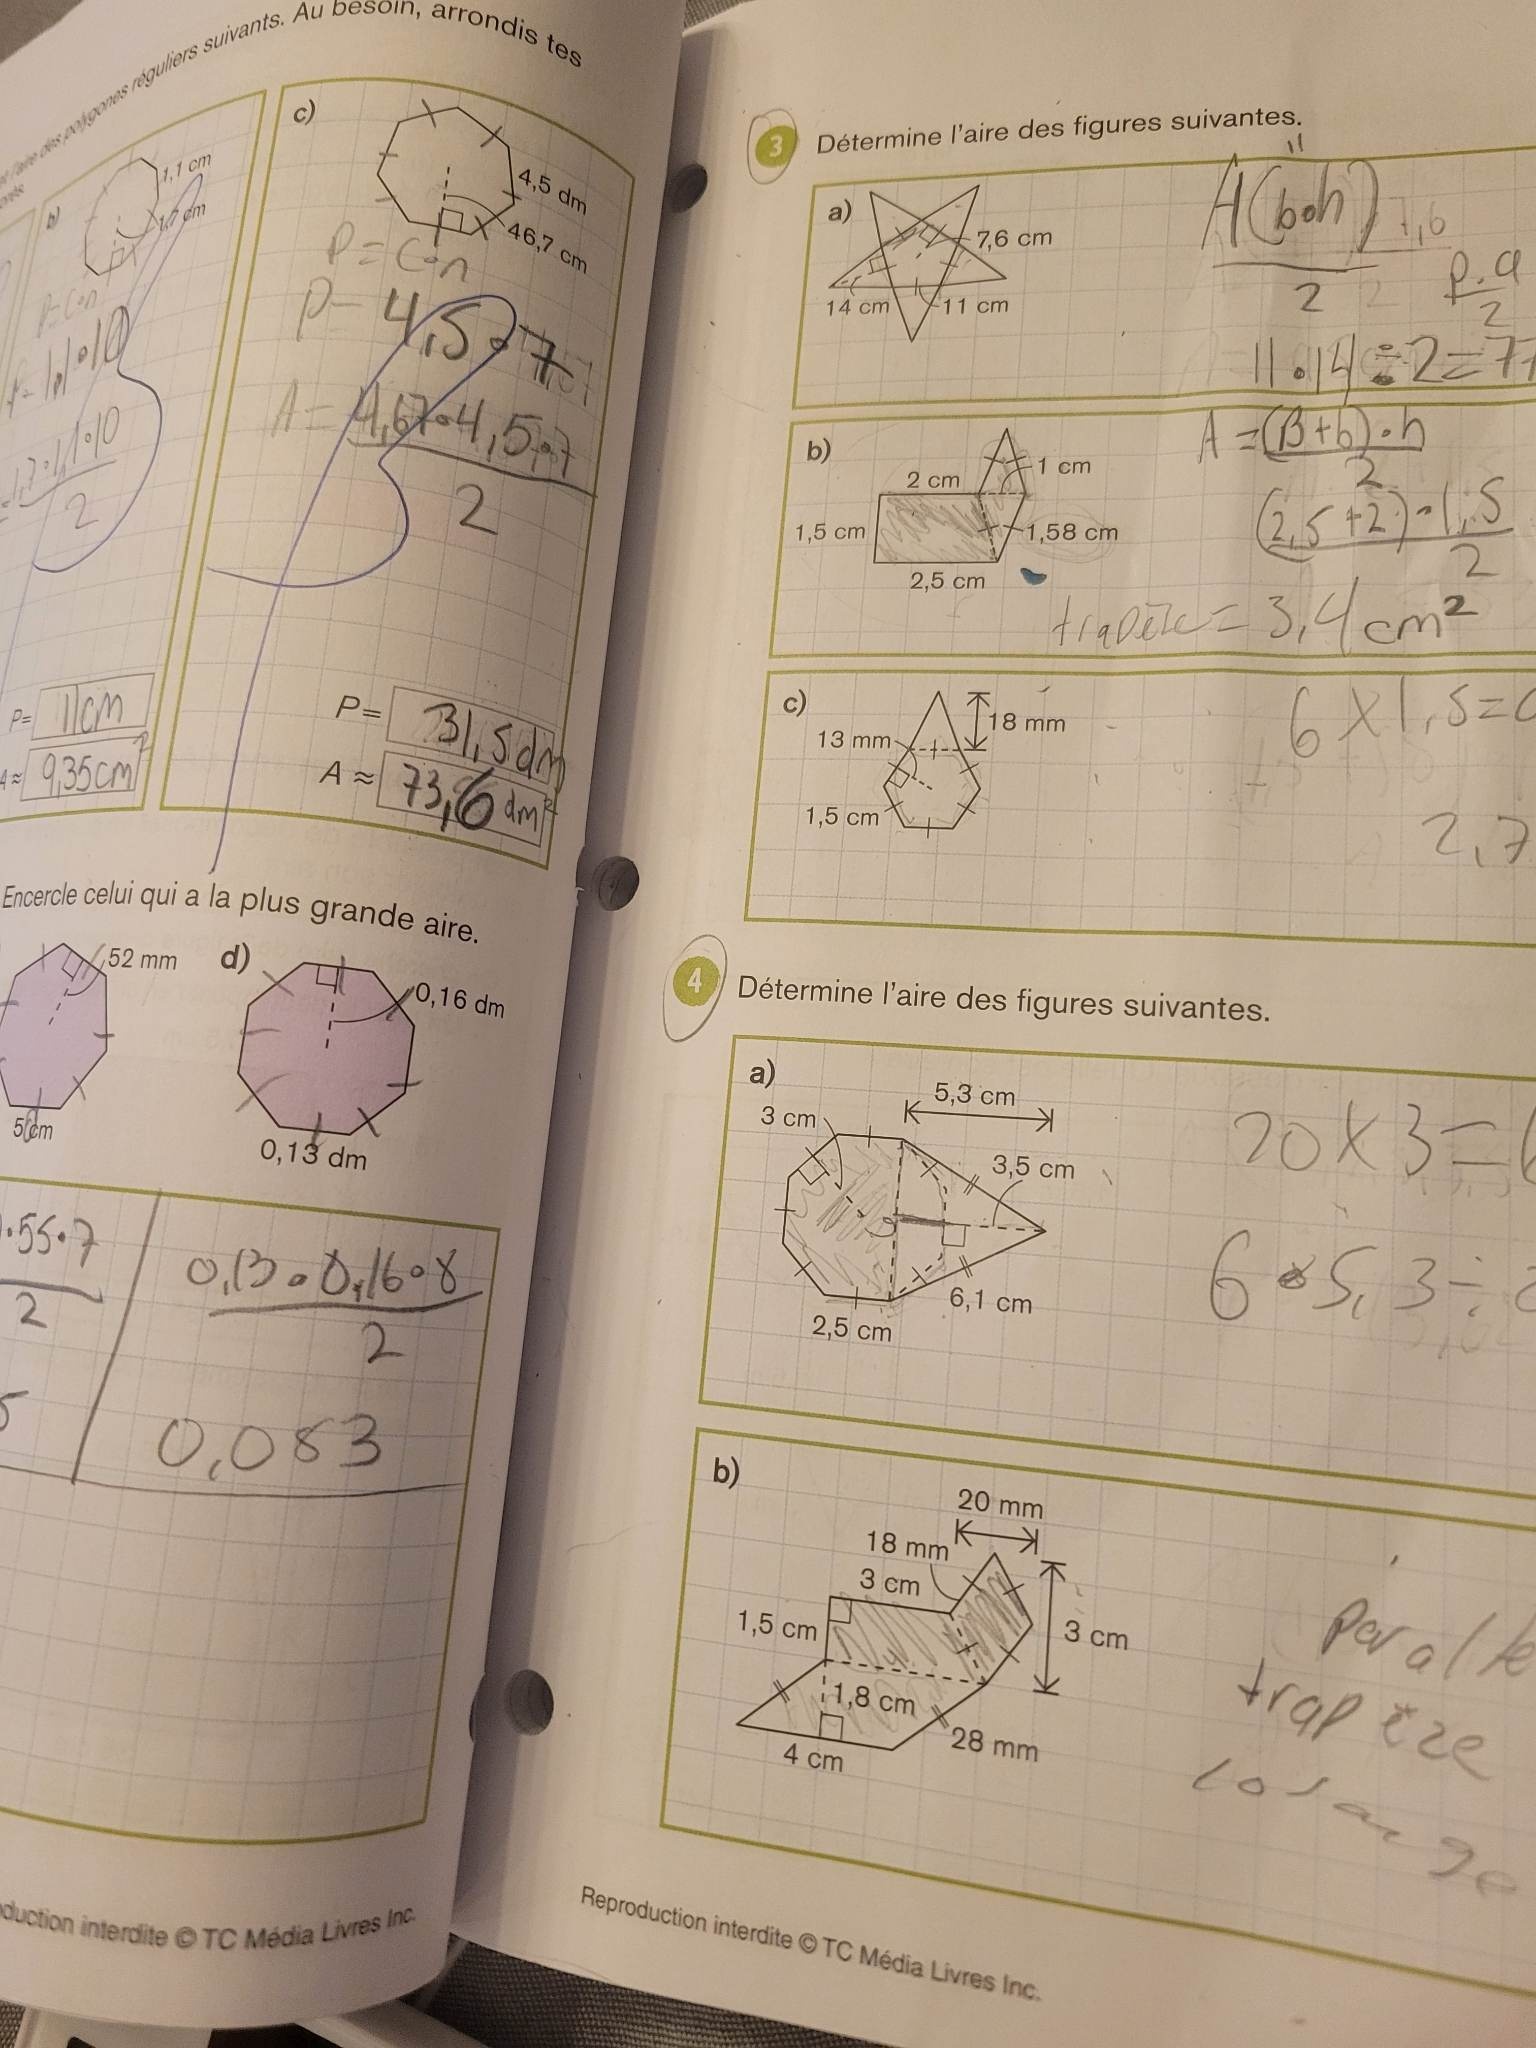 polygones réguliers suivants. Au besoin, arrondis tes
b)
1,1 cm
1,7 cm
P=C•n
1,1•10
2
P= 11cm
A≈ 9,35cm²
c)
4,5 dm
46,7 cm
P=C•n
P= 4,5•7
A= 4,67•4,5•7
2
P= 31,5dm
A≈ 73,6dm²
Encercle celui qui a la plus grande aire.
52 mm
5 cm
d)
0,16 dm
0,13 dm
•55•7
2
0,13•0,16•8
2
0,083
duction interdite © TC Média Livres Inc.
3 Détermine l'aire des figures suivantes.
a)
7,6 cm
14 cm
11 cm
A(b•h) 7,6
2
P.a
2
11•14÷2=77
b)
2 cm
1 cm
1,5 cm
1,58 cm
2,5 cm
A=(B+b)•h
2
(2,5+2)•1,5
2
trapèze=3,4cm²
c)
18 mm
13 mm
1,5 cm
6X1,5=
2,7
4 Détermine l'aire des figures suivantes.
a)
5,3 cm
3 cm
3,5 cm
6,1 cm
2,5 cm
20X3=
6•5,3÷
b)
20 mm
18 mm
3 cm
1,5 cm
3 cm
1,8 cm
28 mm
4 cm
trapèze
losange
Reproduction interdite © TC Média Livres Inc.